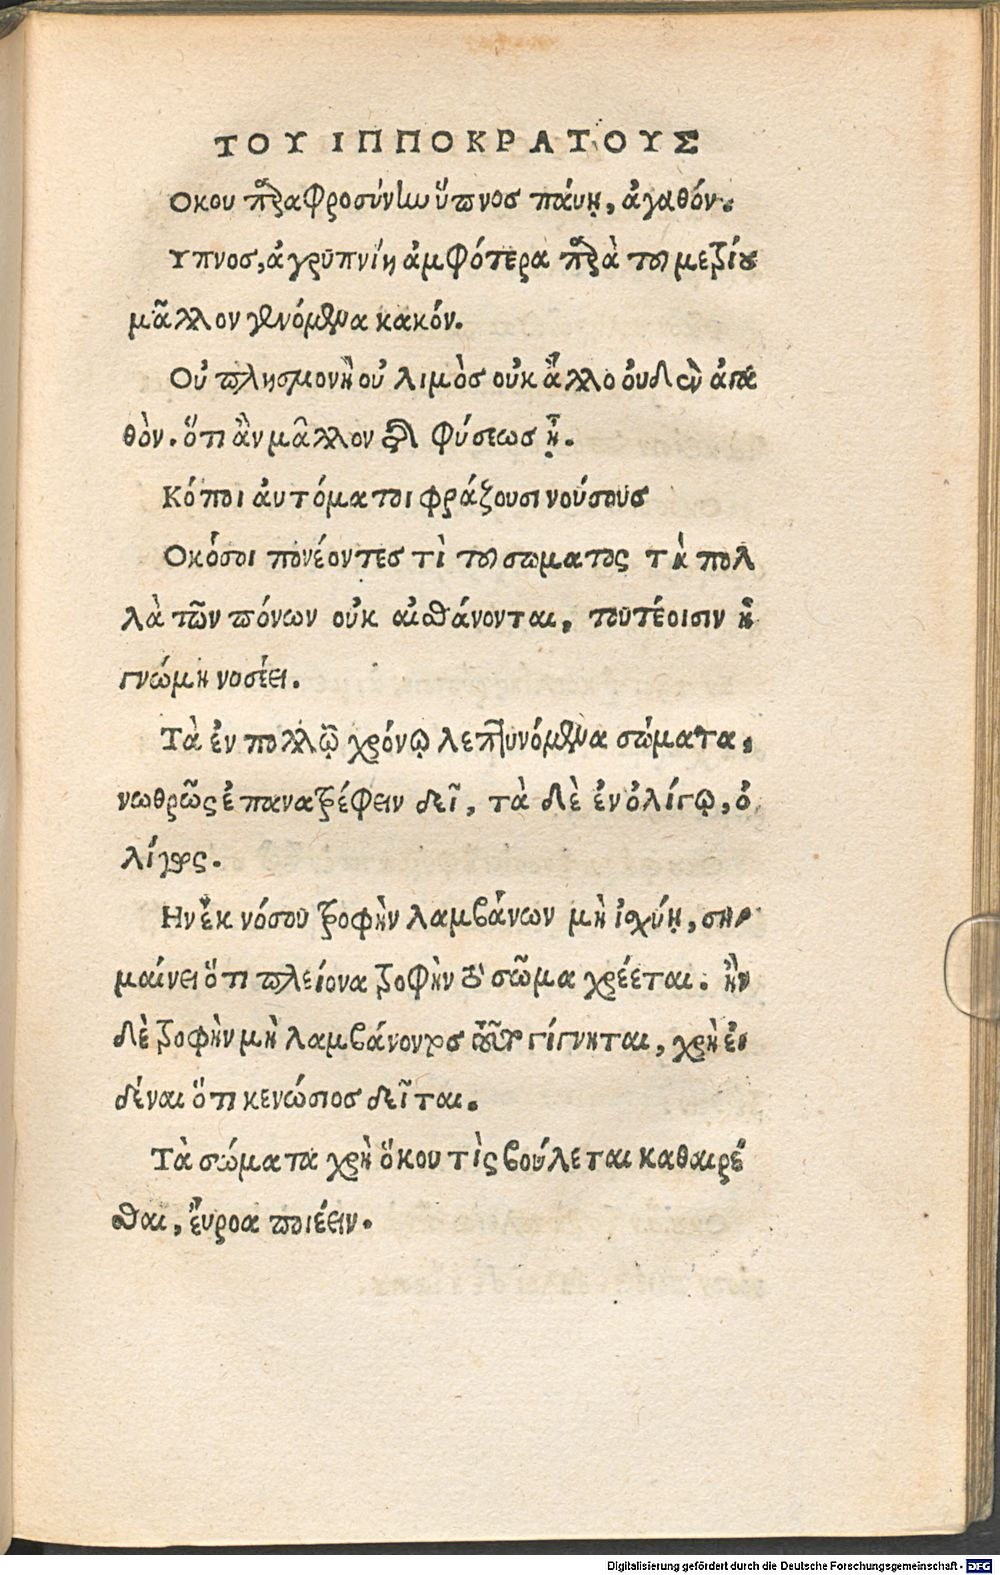 ΤΟΥ ΙΠΠΟΚΡΑΤΟΥΣ
Οκου παραφροσύνην ὕπνος παύῃ, ἀγαθόν.
Υπνος, ἀγρυπνίη ἀμφότερα παρὰ τοῦ μετρίου
μᾶλλον γενόμενα κακόν.
Οὐ πλησμονὴ οὐ λιμὸς οὐκ ἄλλο ὀυδὲν ἀγα
θὸν. ὅτι ἂν μᾶλλον τῆς φύσεως ᾖ.
Κόποι ἀυτόματοι φράζουσι νούσους
Οκόσοι πονέοντες τὶ τοῦ σωματος τὰ πολ
λὰ τῶν πόνων οὐκ αἰσθάνονται, τουτέοισιν ἡ
γνώμη νοσέει.
Τὰ ἐν πολλῷ χρόνῳ λεπτυνόμενα σώματα,
νωθρῶς ἐπανατρέφειν δεῖ, τὰ δὲ ἐν ὀλίγῳ, ὀ
λίγως.
Ην ἐκ νόσου τροφὴν λαμβάνων μὴ ἰσχύῃ, ση
μαίνει ὅτι πλείονα τροφὴν τὸ σῶμα χρέεται. ἢν
δὲ τροφὴν μὴ λαμβάνοντος τοῦτο γίγνηται, χρὴ εἰ
δέναι ὅτι κενώσιος δεῖται.
Τὰ σώματα χρὴ ὅκου τὶς βούλεται καθαιρέ
σθαι, ἔυροα ποιέειν.
Digitalisierung gefördert durch die Deutsche Forschungsgemeinschaft - DFG